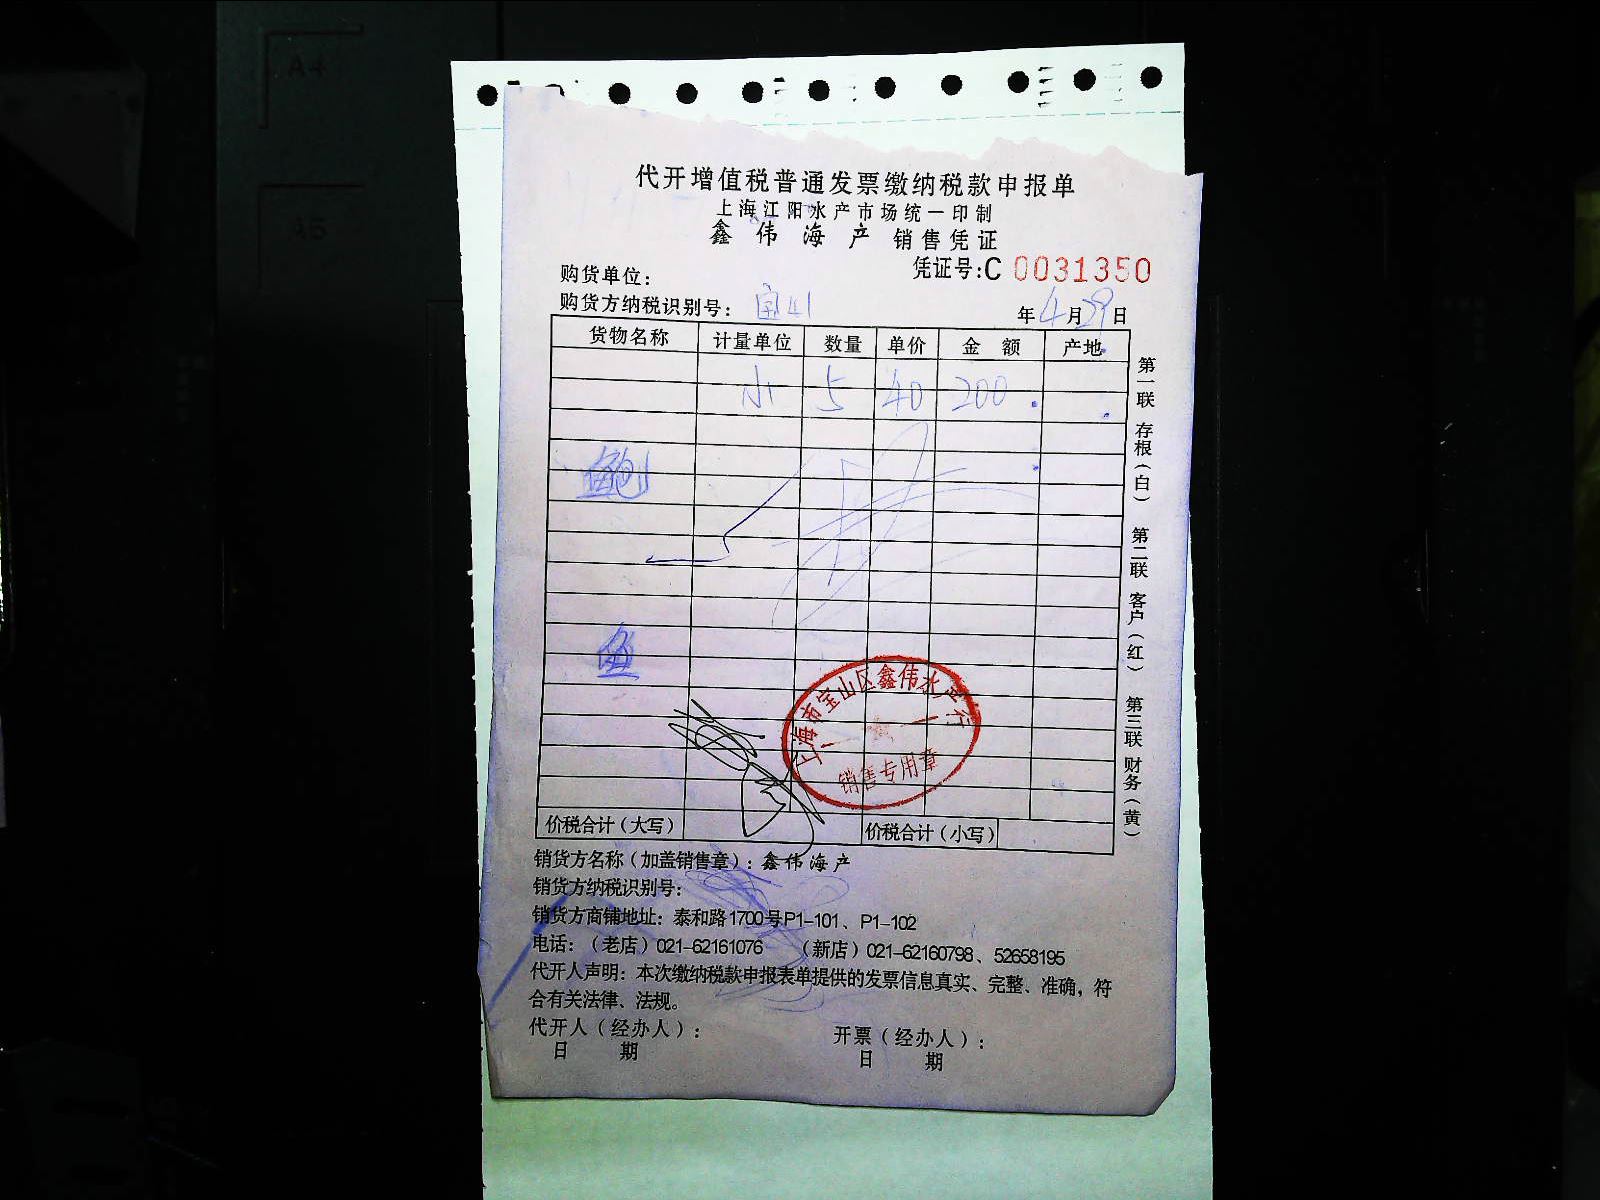 A4
A5
代开增值税普通发票缴纳税款申报单
上海江阳水产市场统一印制
鑫伟海产 销售凭证
凭证号:C 0031350
购货单位：
购货方纳税识别号：
年4月29日
货物名称 计量单位 数量 单价 金额 产地
小 5 40 200
鲍
鱼
上海市宝山区鑫伟水产行
销售专用章
价税合计（大写） 价税合计（小写）
销货方名称（加盖销售章）：鑫伟海产
销货方纳税识别号：
销货方商铺地址：泰和路1700号P1-101、P1-102
电话：（老店）021-62161076 （新店）021-62160798、52658195
代开人声明：本次缴纳税款申报表单提供的发票信息真实、完整、准确，符
合有关法律、法规。
代开人（经办人）： 开票（经办人）：
日期 日期
第一联 存根（白） 第二联 客户（红） 第三联 财务（黄）